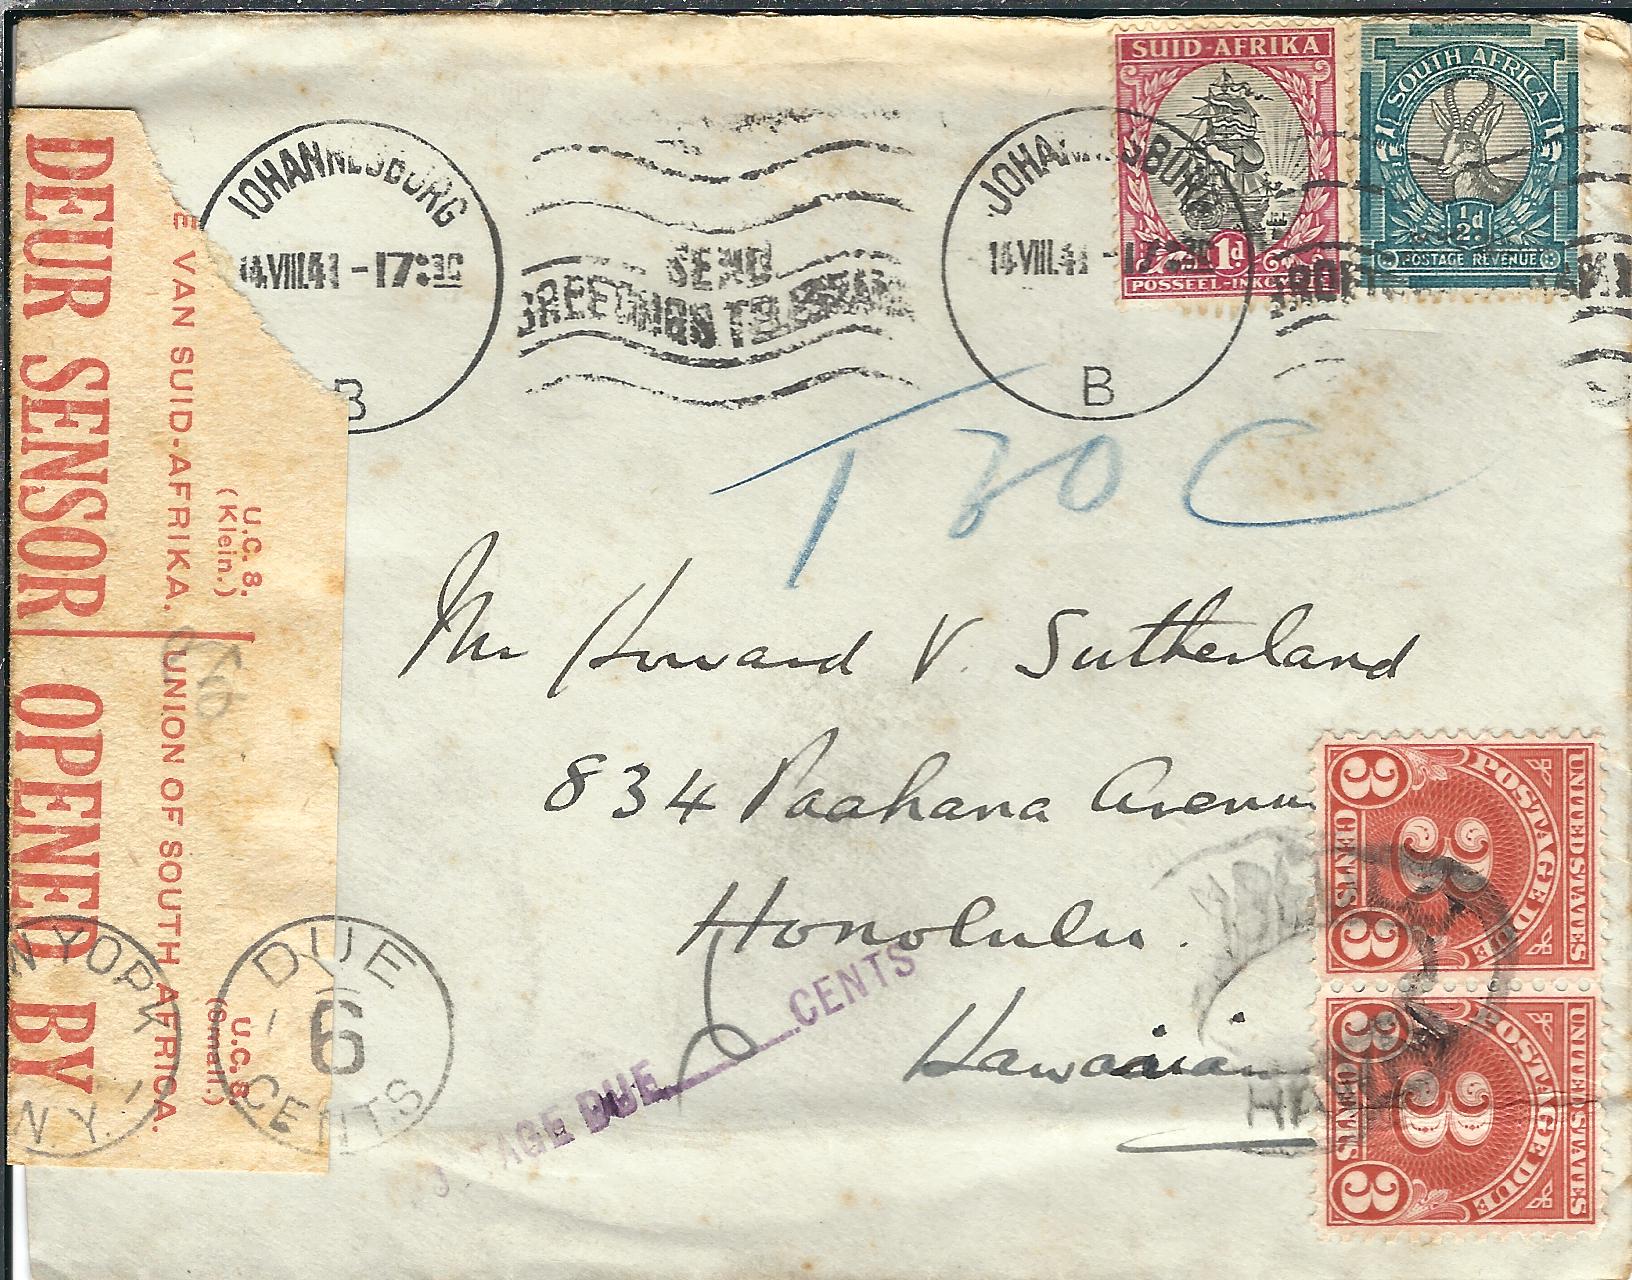 SUID-AFRIKA
1d
POSSEEL-INKOMSTE
SOUTH AFRICA
½d
POSTAGE REVENUE
JOHANNESBURG
14.VIII.41-17:30
B
SEND
GREETINGS TELEGRAM
JOHANNESBURG
14.VIII.41-17:30
B
T30C
Mr Howard V. Sutherland
834 Paahana Avenue
Honolulu.
Hawaiian
DEUR SENSOR OPENED BY
E VAN SUID-AFRIKA. UNION OF SOUTH AFRICA.
U.C. 8.
(Klein.)
U.C. 8.
(Small.)
W YORK
N.Y. 1
DUE
6
CENTS
POSTAGE DUE 6 CENTS
UNITED STATES
POSTAGE DUE
3 3 3
CENTS
UNITED STATES
POSTAGE DUE
3 3 3
CENTS